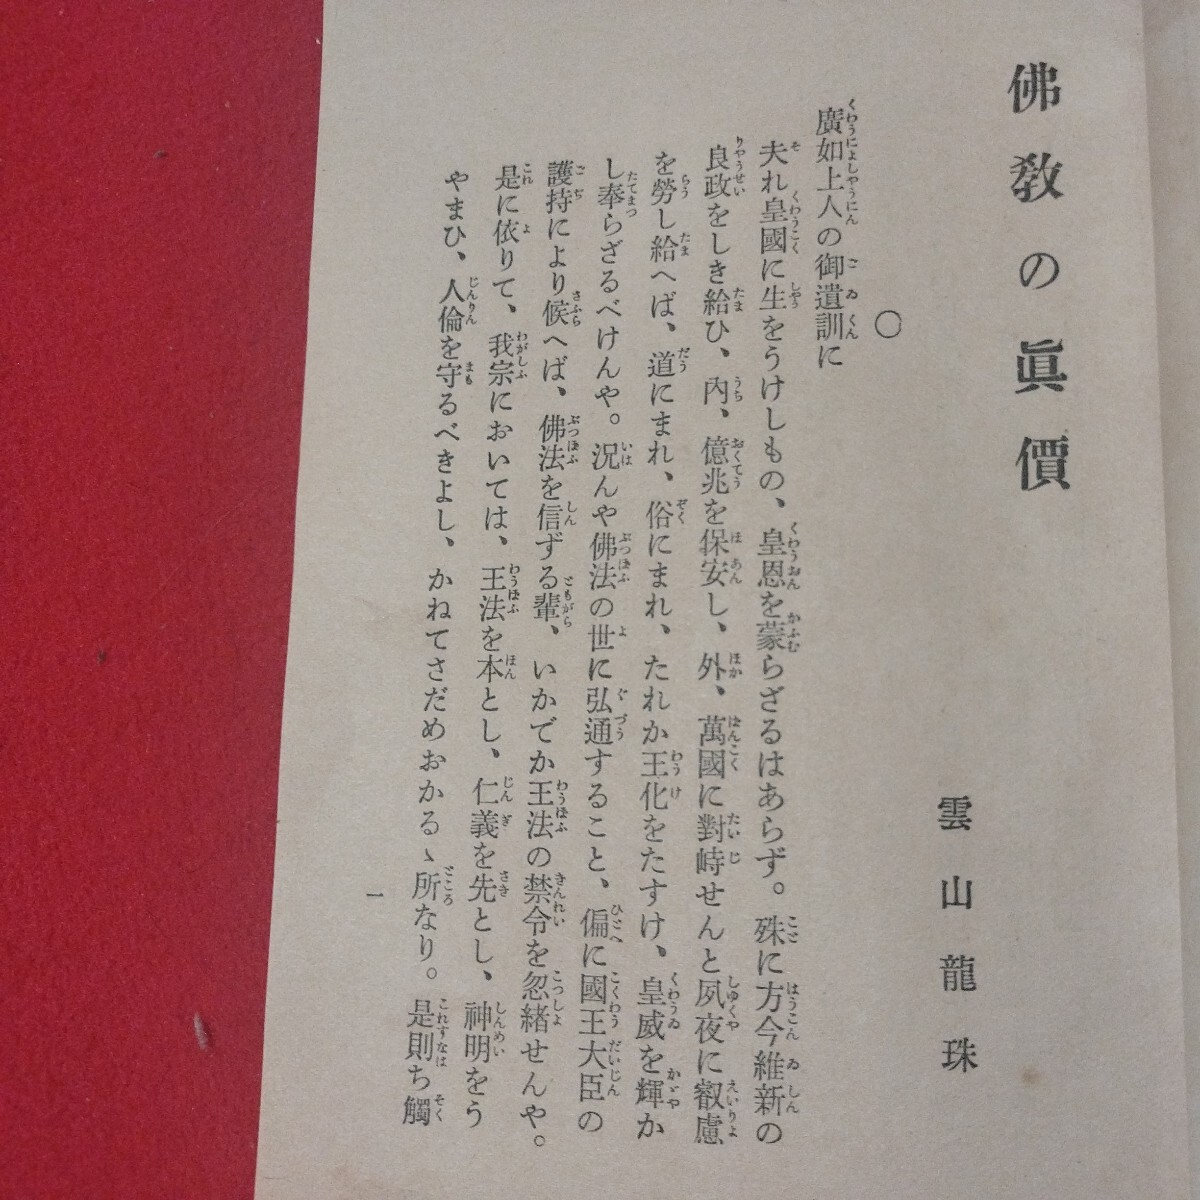 佛教の眞價
雲山龍珠
〇
廣如上人の御遺訓に
夫れ皇國に生をうけしもの、皇恩を蒙らざるはあらず。殊に方今維新の
良政をしき給ひ、內、億兆を保安し、外、萬國に對峙せんと夙夜に叡慮
を勞し給へば、道にまれ、俗にまれ、たれか王化をたすけ、皇威を輝か
し奉らざるべけんや。況んや佛法の世に弘通すること、偏に國王大臣の
護持により候へば、佛法を信ずる輩、いかでか王法の禁令を忽緒せんや。
是に依りて、我宗においては、王法を本とし、仁義を先とし、神明をう
やまひ、人倫を守るべきよし、かねてさだめおかるゝ所なり。是則ち觸
一